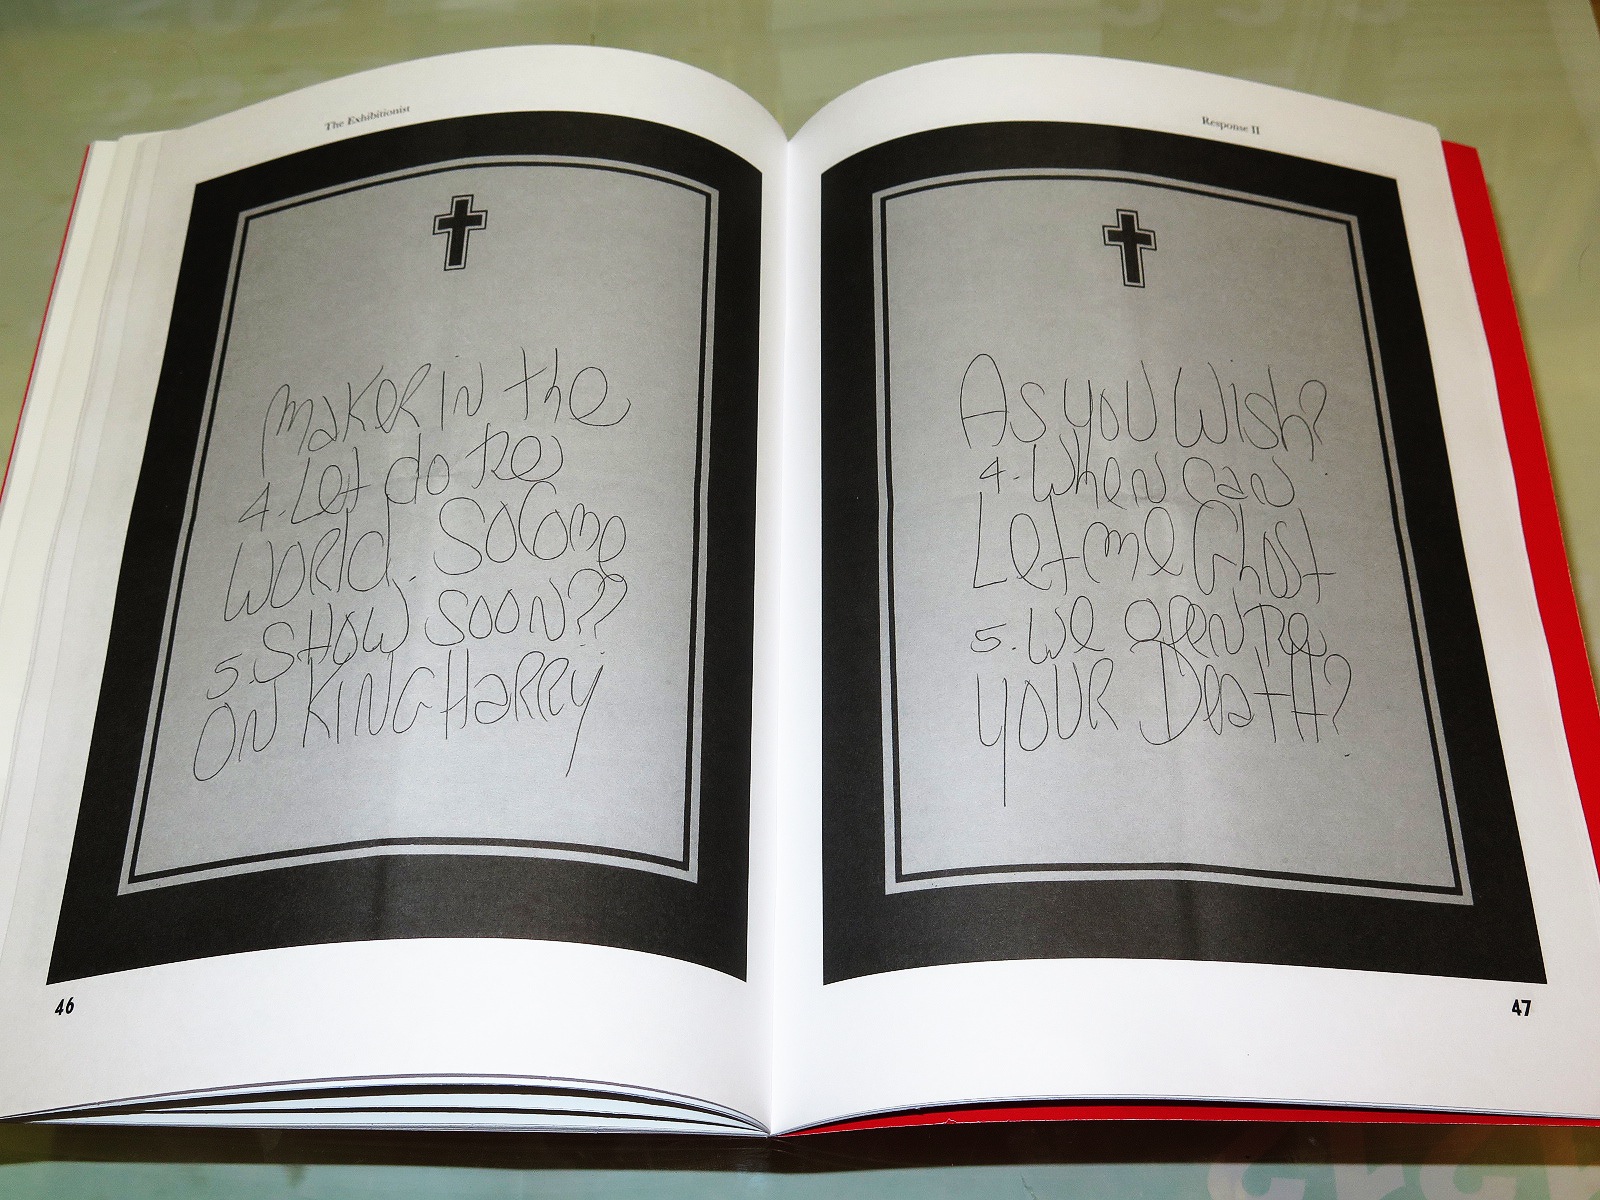 The Exhibitionist
MakeR iN the
4. Let do Re
WORld. SoCome
5. SHOW SOON??
ON KING HaRRy
46
Response II
As you Wish?
4. When can
Let me Ghost
5. We Re
your DeatH?
47